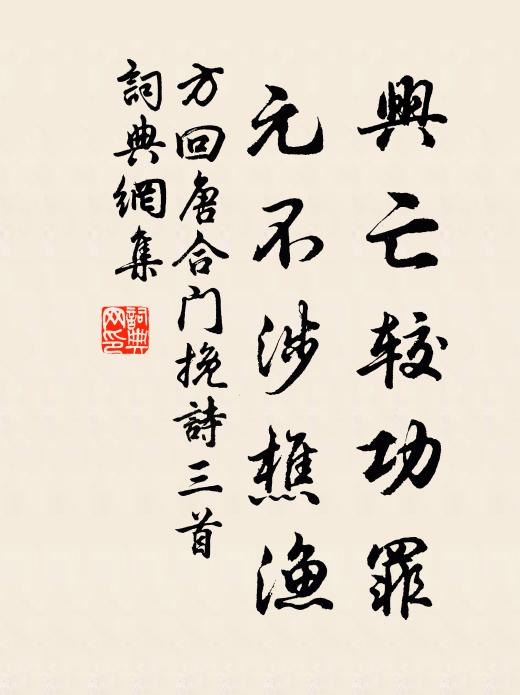 興亡较功罪
元不涉樵漁
方回唐合门挽詩三首
詞典網集
詞典网印